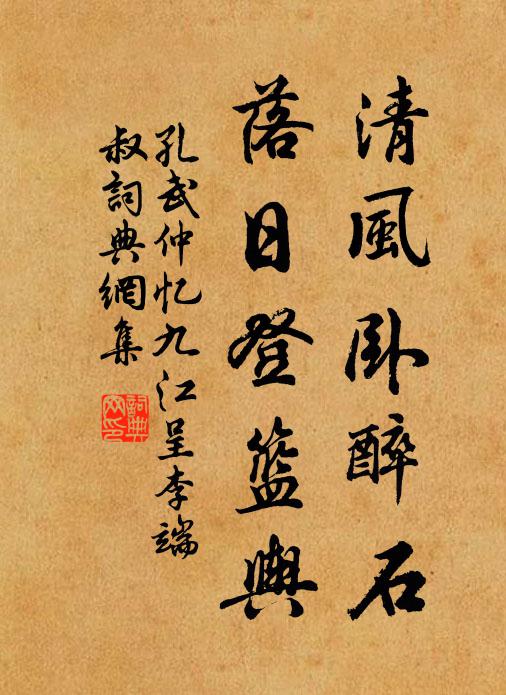 清風卧醉石
落日登籃輿
孔武仲忆九江呈李端
叔詞典網集
詞典
网印